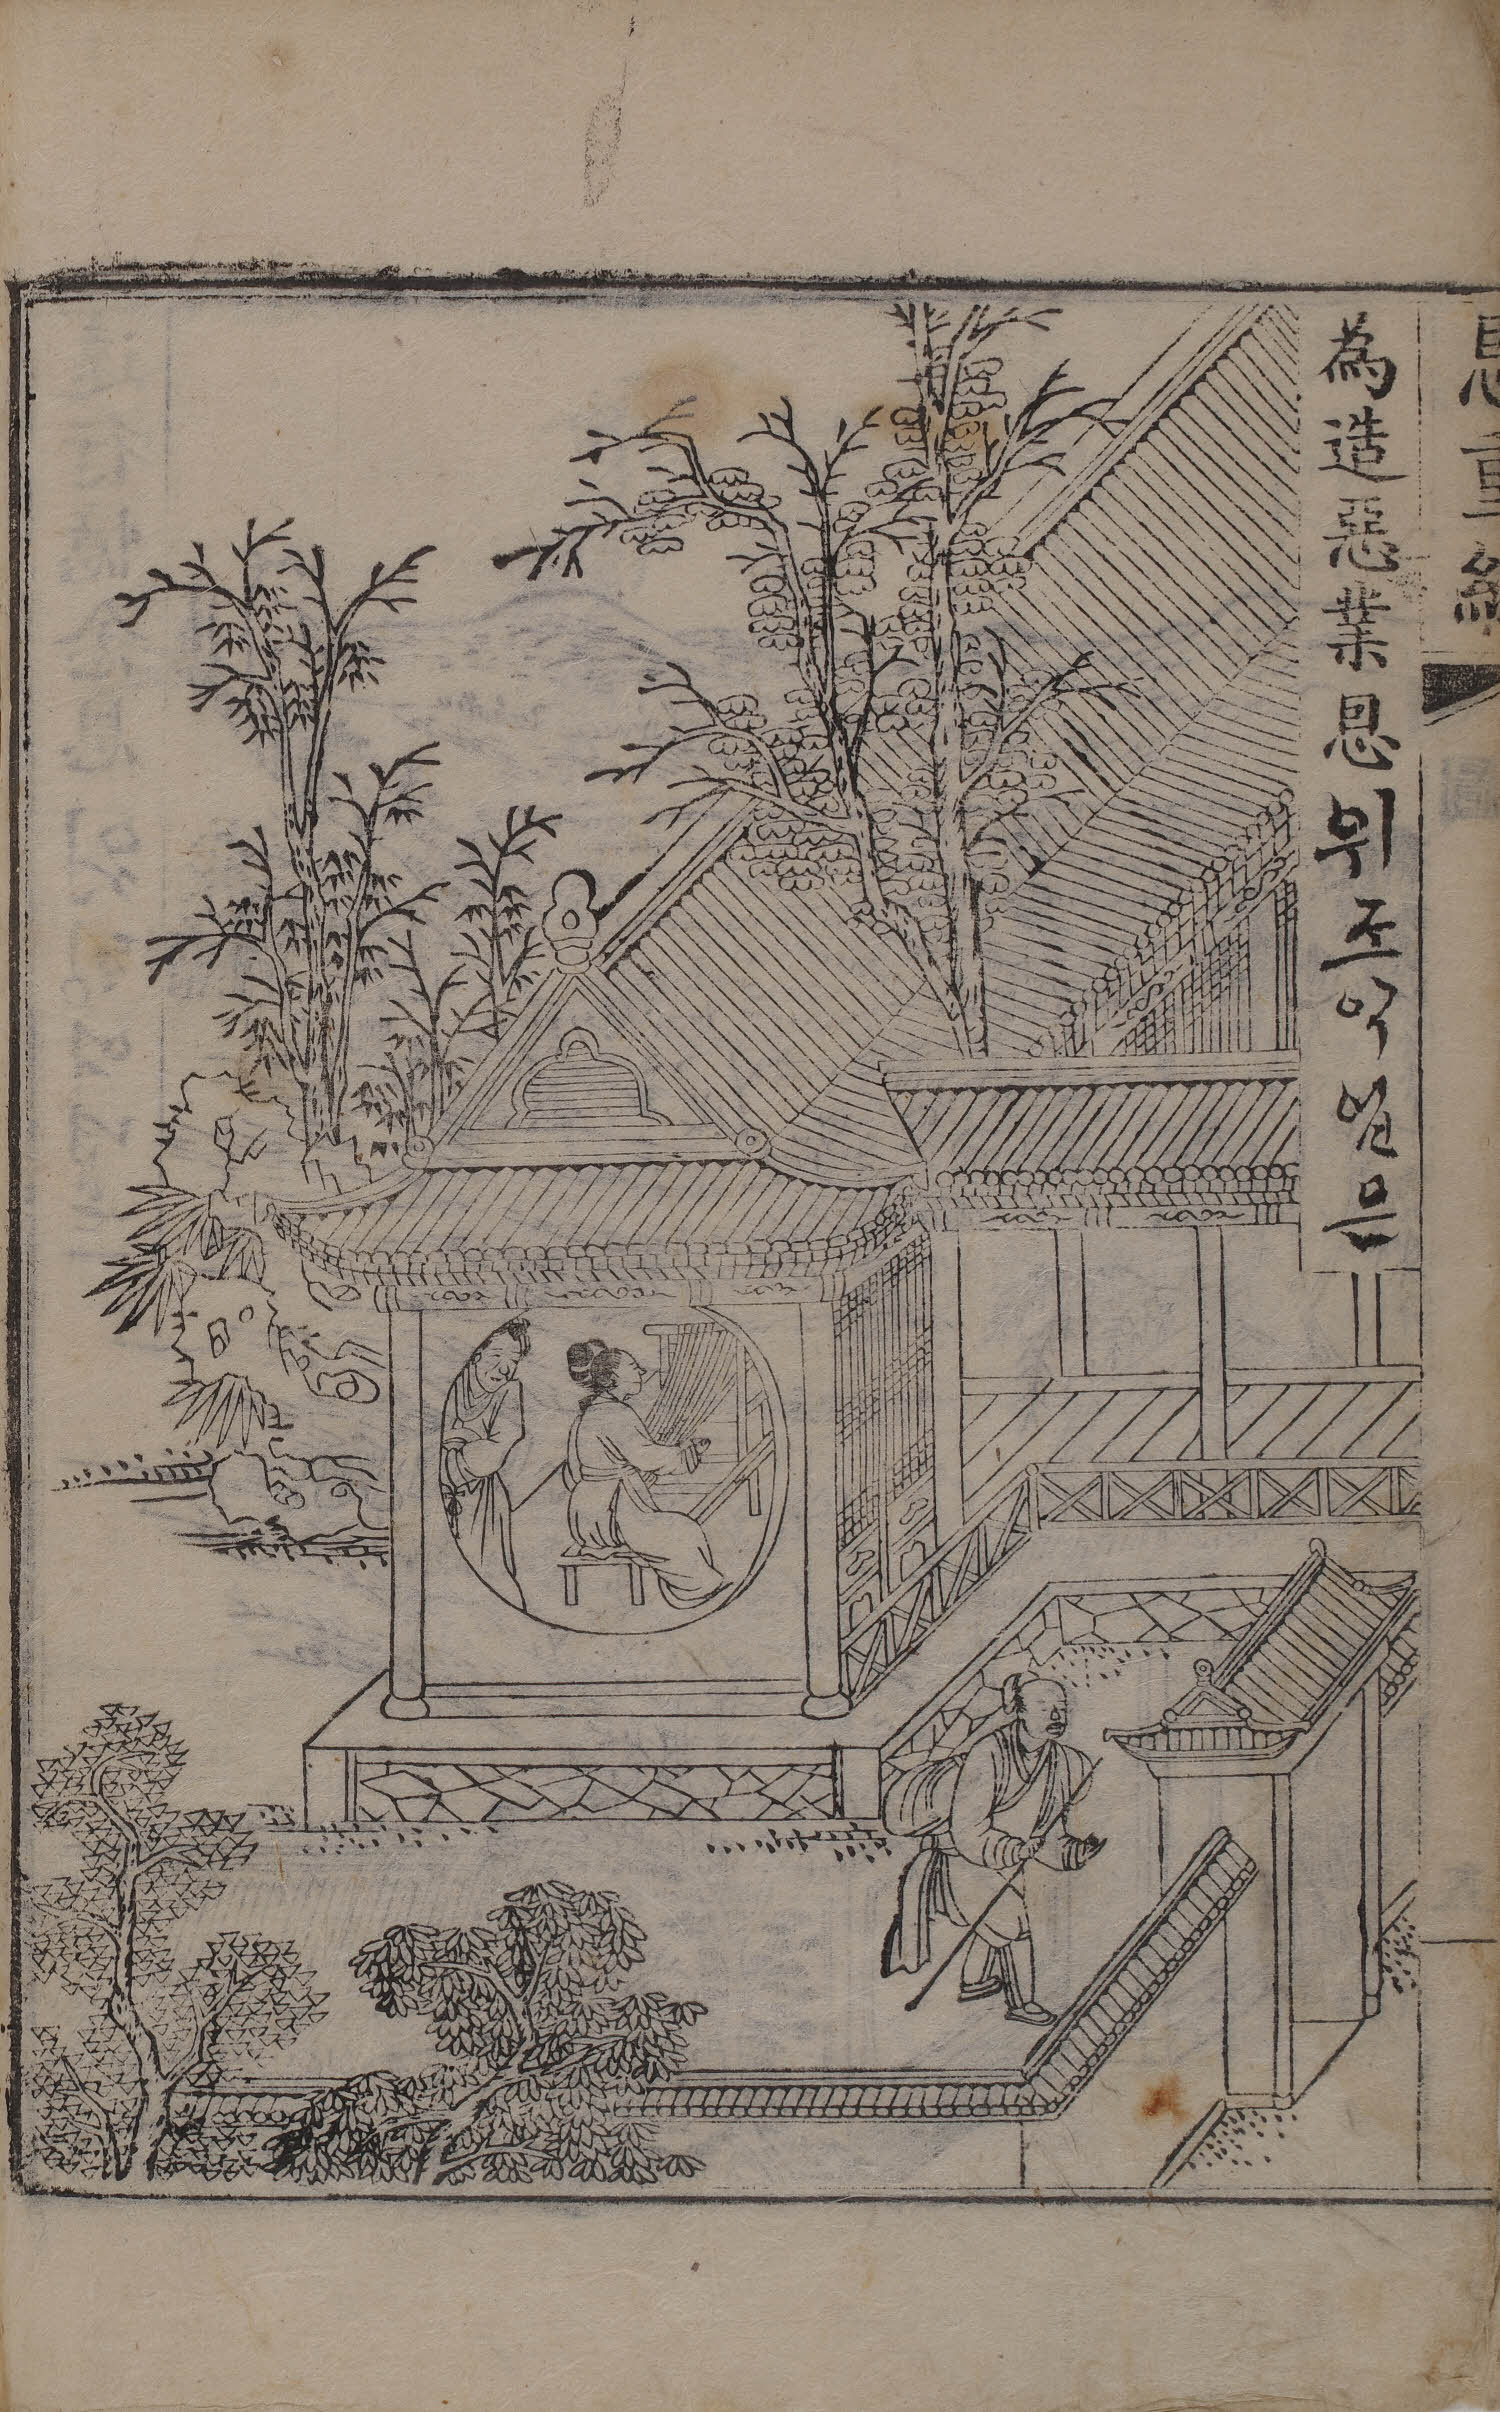 為造惡業恩위조악업은
恩重經